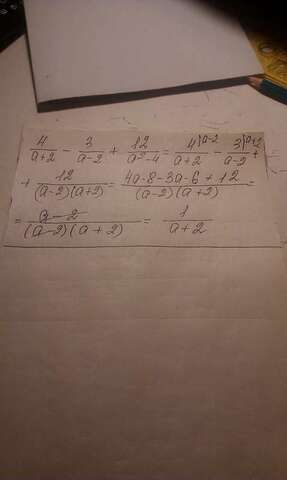 4/(a+2) - 3/(a-2) + 12/(a²-4) = 4\a-2/(a+2) - 3\a+2/(a-2) +
+ 12/((a-2)(a+2)) = (4a-8-3a-6+12)/((a-2)(a+2)) =
= (a-2)/((a-2)(a+2)) = 1/(a+2)